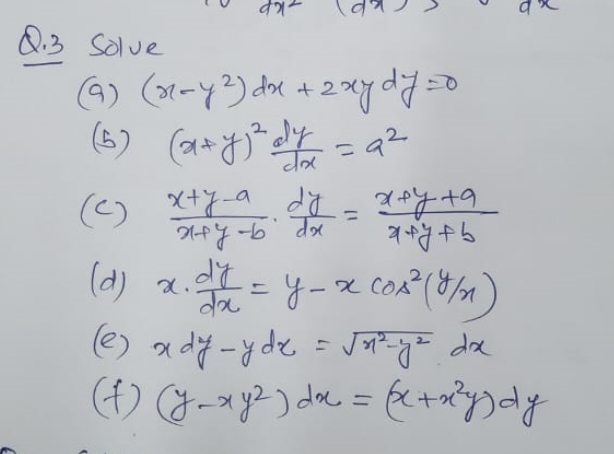 dx² (dx) 3 dx
Q.3 Solve
(a) (x-y²)dx + 2xy dy = 0
(b) (x+y)² dy/dx = a²
(c) x+y-a/x+y-b . dy/dx = x+y+a/x+y+b
(d) x. dy/dx = y - x cos²(y/x)
(e) x dy - y dx = √x²-y² dx
(f) (y-xy²)dx = (x+x²y)dy